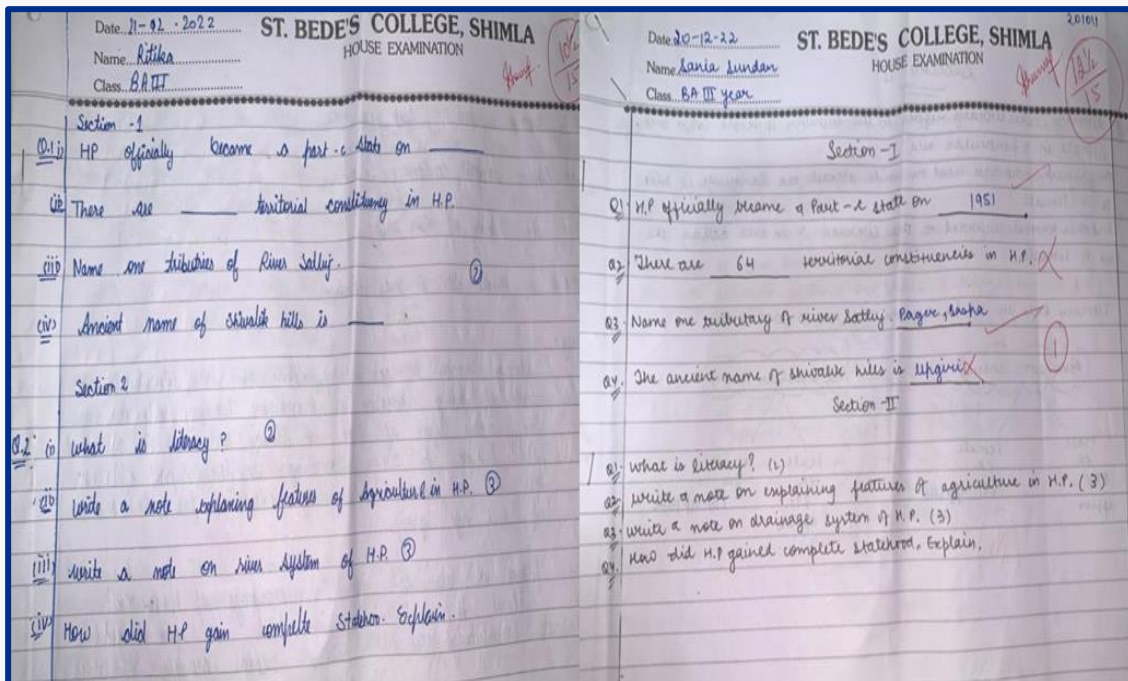 Date 21-02-2022
ST. BEDE'S COLLEGE, SHIMLA
HOUSE EXAMINATION
Name Ritika
Class BA III
10½
15
Section -1
Q.1 i) HP officially became a part-c state on
(ii) There are territorial constituency in H.P.
(iii) Name one tributries of River Satluj. 2
(iv) Ancient name of shivalik hills is
Section 2
Q.2 (i) what is literacy? 2
(ii) write a note explaning features of Agriculture in H.P. 3
(iii) write a note on river system of H.P. 3
(iv) How did HP gain compelte Statehoo. Explain.
201011
Date 20-12-22
ST. BEDE'S COLLEGE, SHIMLA
HOUSE EXAMINATION
Name Sania Sundan
Class BA III year
12½
15
Section -I
Q1 H.P officially became a Part-c state on 1951.
Q2 There are 64 territorial constituencies in H.P.
Q3. Name one tributary of river Satluj.
1
Q4. The ancient name of shivalik hills is upgiri
Section -II
Q1. What is literacy? (2)
Q2. write a note on explaining features of agriculture in H.P. (3)
Q3. write a note on drainage system of H.P. (3)
Q4. How did H.P gained complete statehood. Explain.